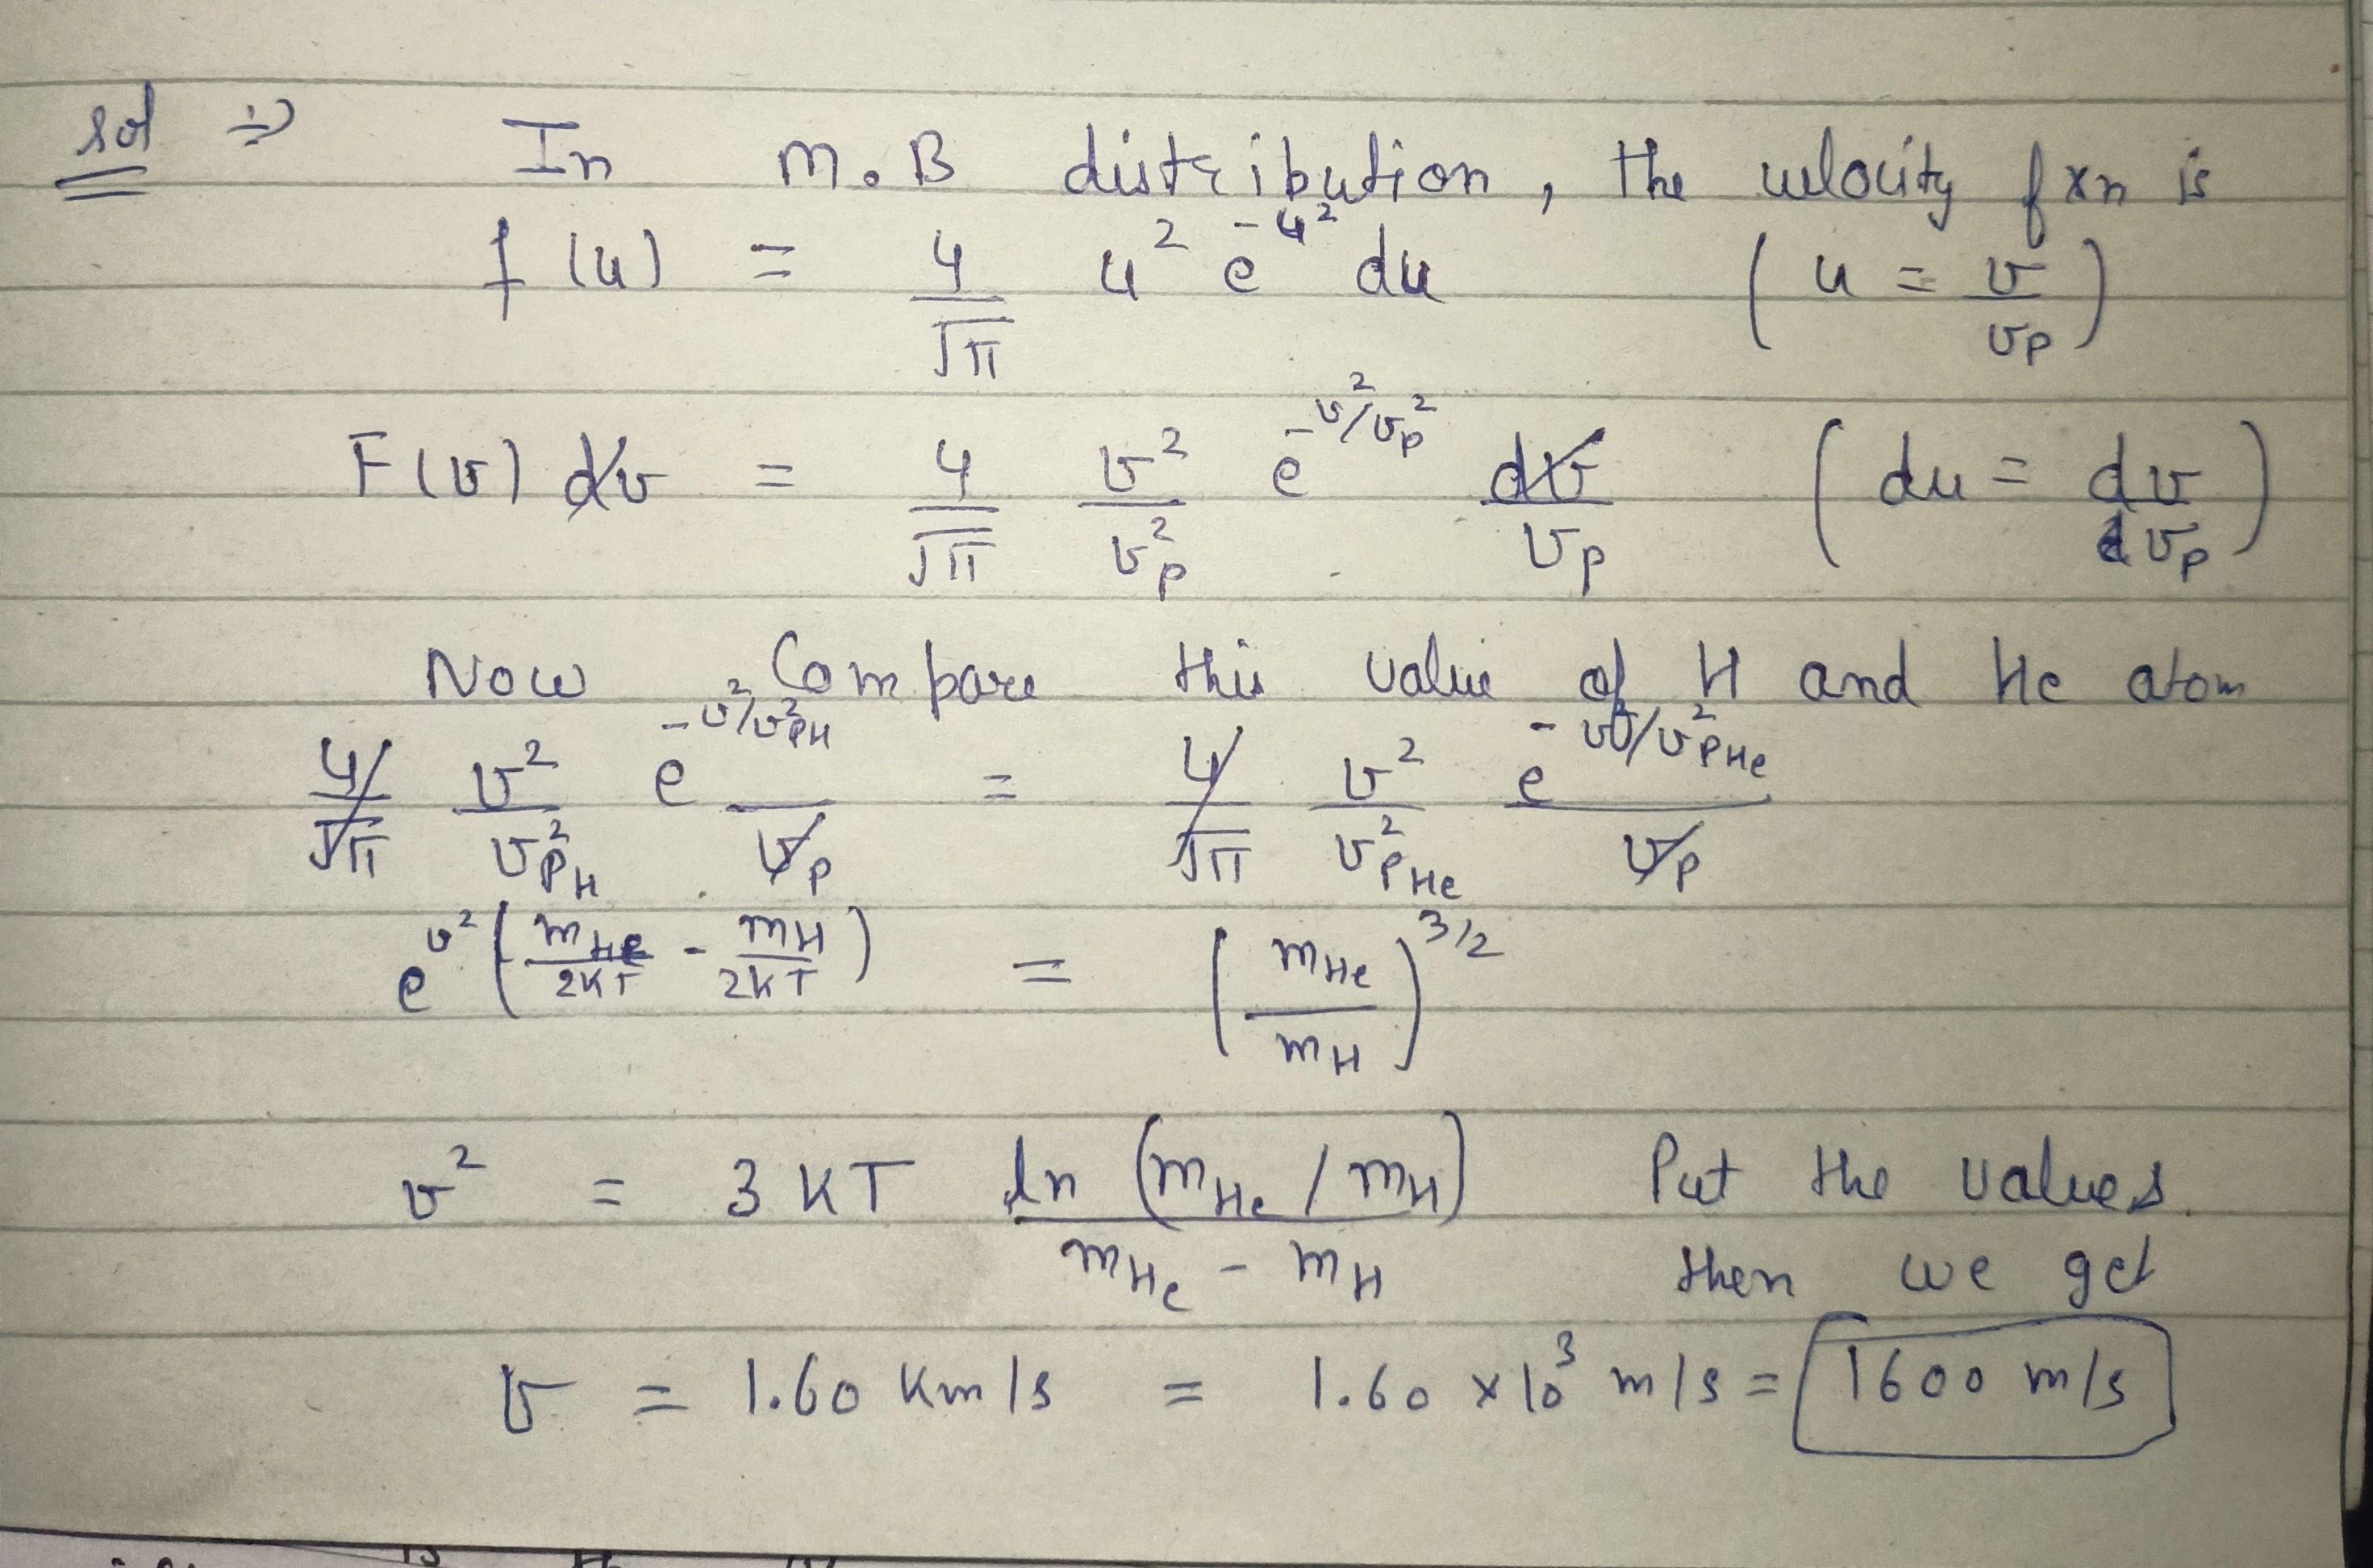 sol ⇒ In M.B distribution, the velocity fxn is
f(u) = 4/√π u² e^(-u²) du (u = v/vp)
F(v) dv = 4/√π v²/vp² e^(-v²/vp²) dv/vp (du = dv/vp)
Now Compare this value of H and He atom
4/√π v²/v²pH e^(-v²/v²pH)/vp = 4/√π v²/v²pHe e^(-v²/v²pHe)/vp
e^(v²(mHe/2KT - mH/2KT)) = (mHe/mH)^(3/2)
v² = 3KT ln(mHe/mH)/(mHe - mH) Put the values
then we get
v = 1.60 Km/s = 1.60 × 10³ m/s = 1600 m/s